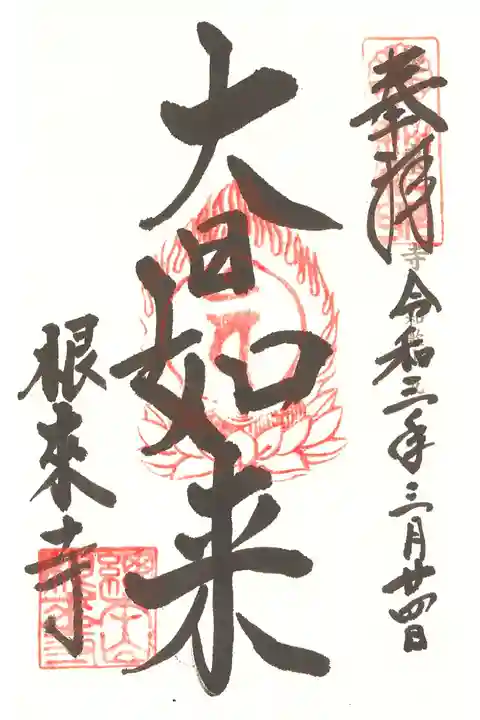 奉拝
令和三年三月廿四日
大日如来
根來寺